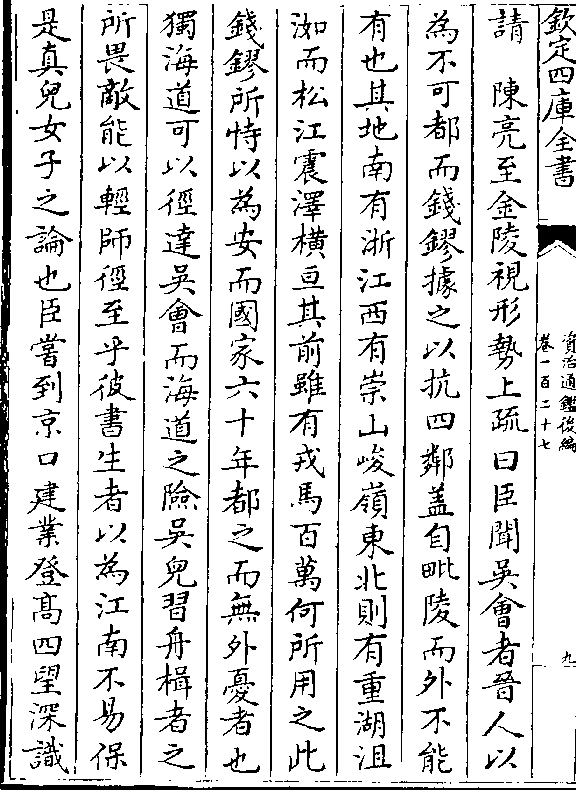 欽定四庫全書
資治通鑑後編
卷一百二十七
九
請　陳亮至金陵視形勢上疏曰臣聞吳會者晉人以
為不可都而錢鏐據之以抗四鄰蓋自毗陵而外不能
有也其地南有浙江西有崇山峻嶺東北則有重湖沮
洳而松江震澤橫亘其前雖有戎馬百萬何所用之此
錢鏐所恃以為安而國家六十年都之而無外憂者也
獨海道可以徑達吳會而海道之險吳兒習舟楫者之
所畏敵能以輕師徑至乎彼書生者以為江南不易保
是真兒女子之論也臣嘗到京口建業登髙四望深識